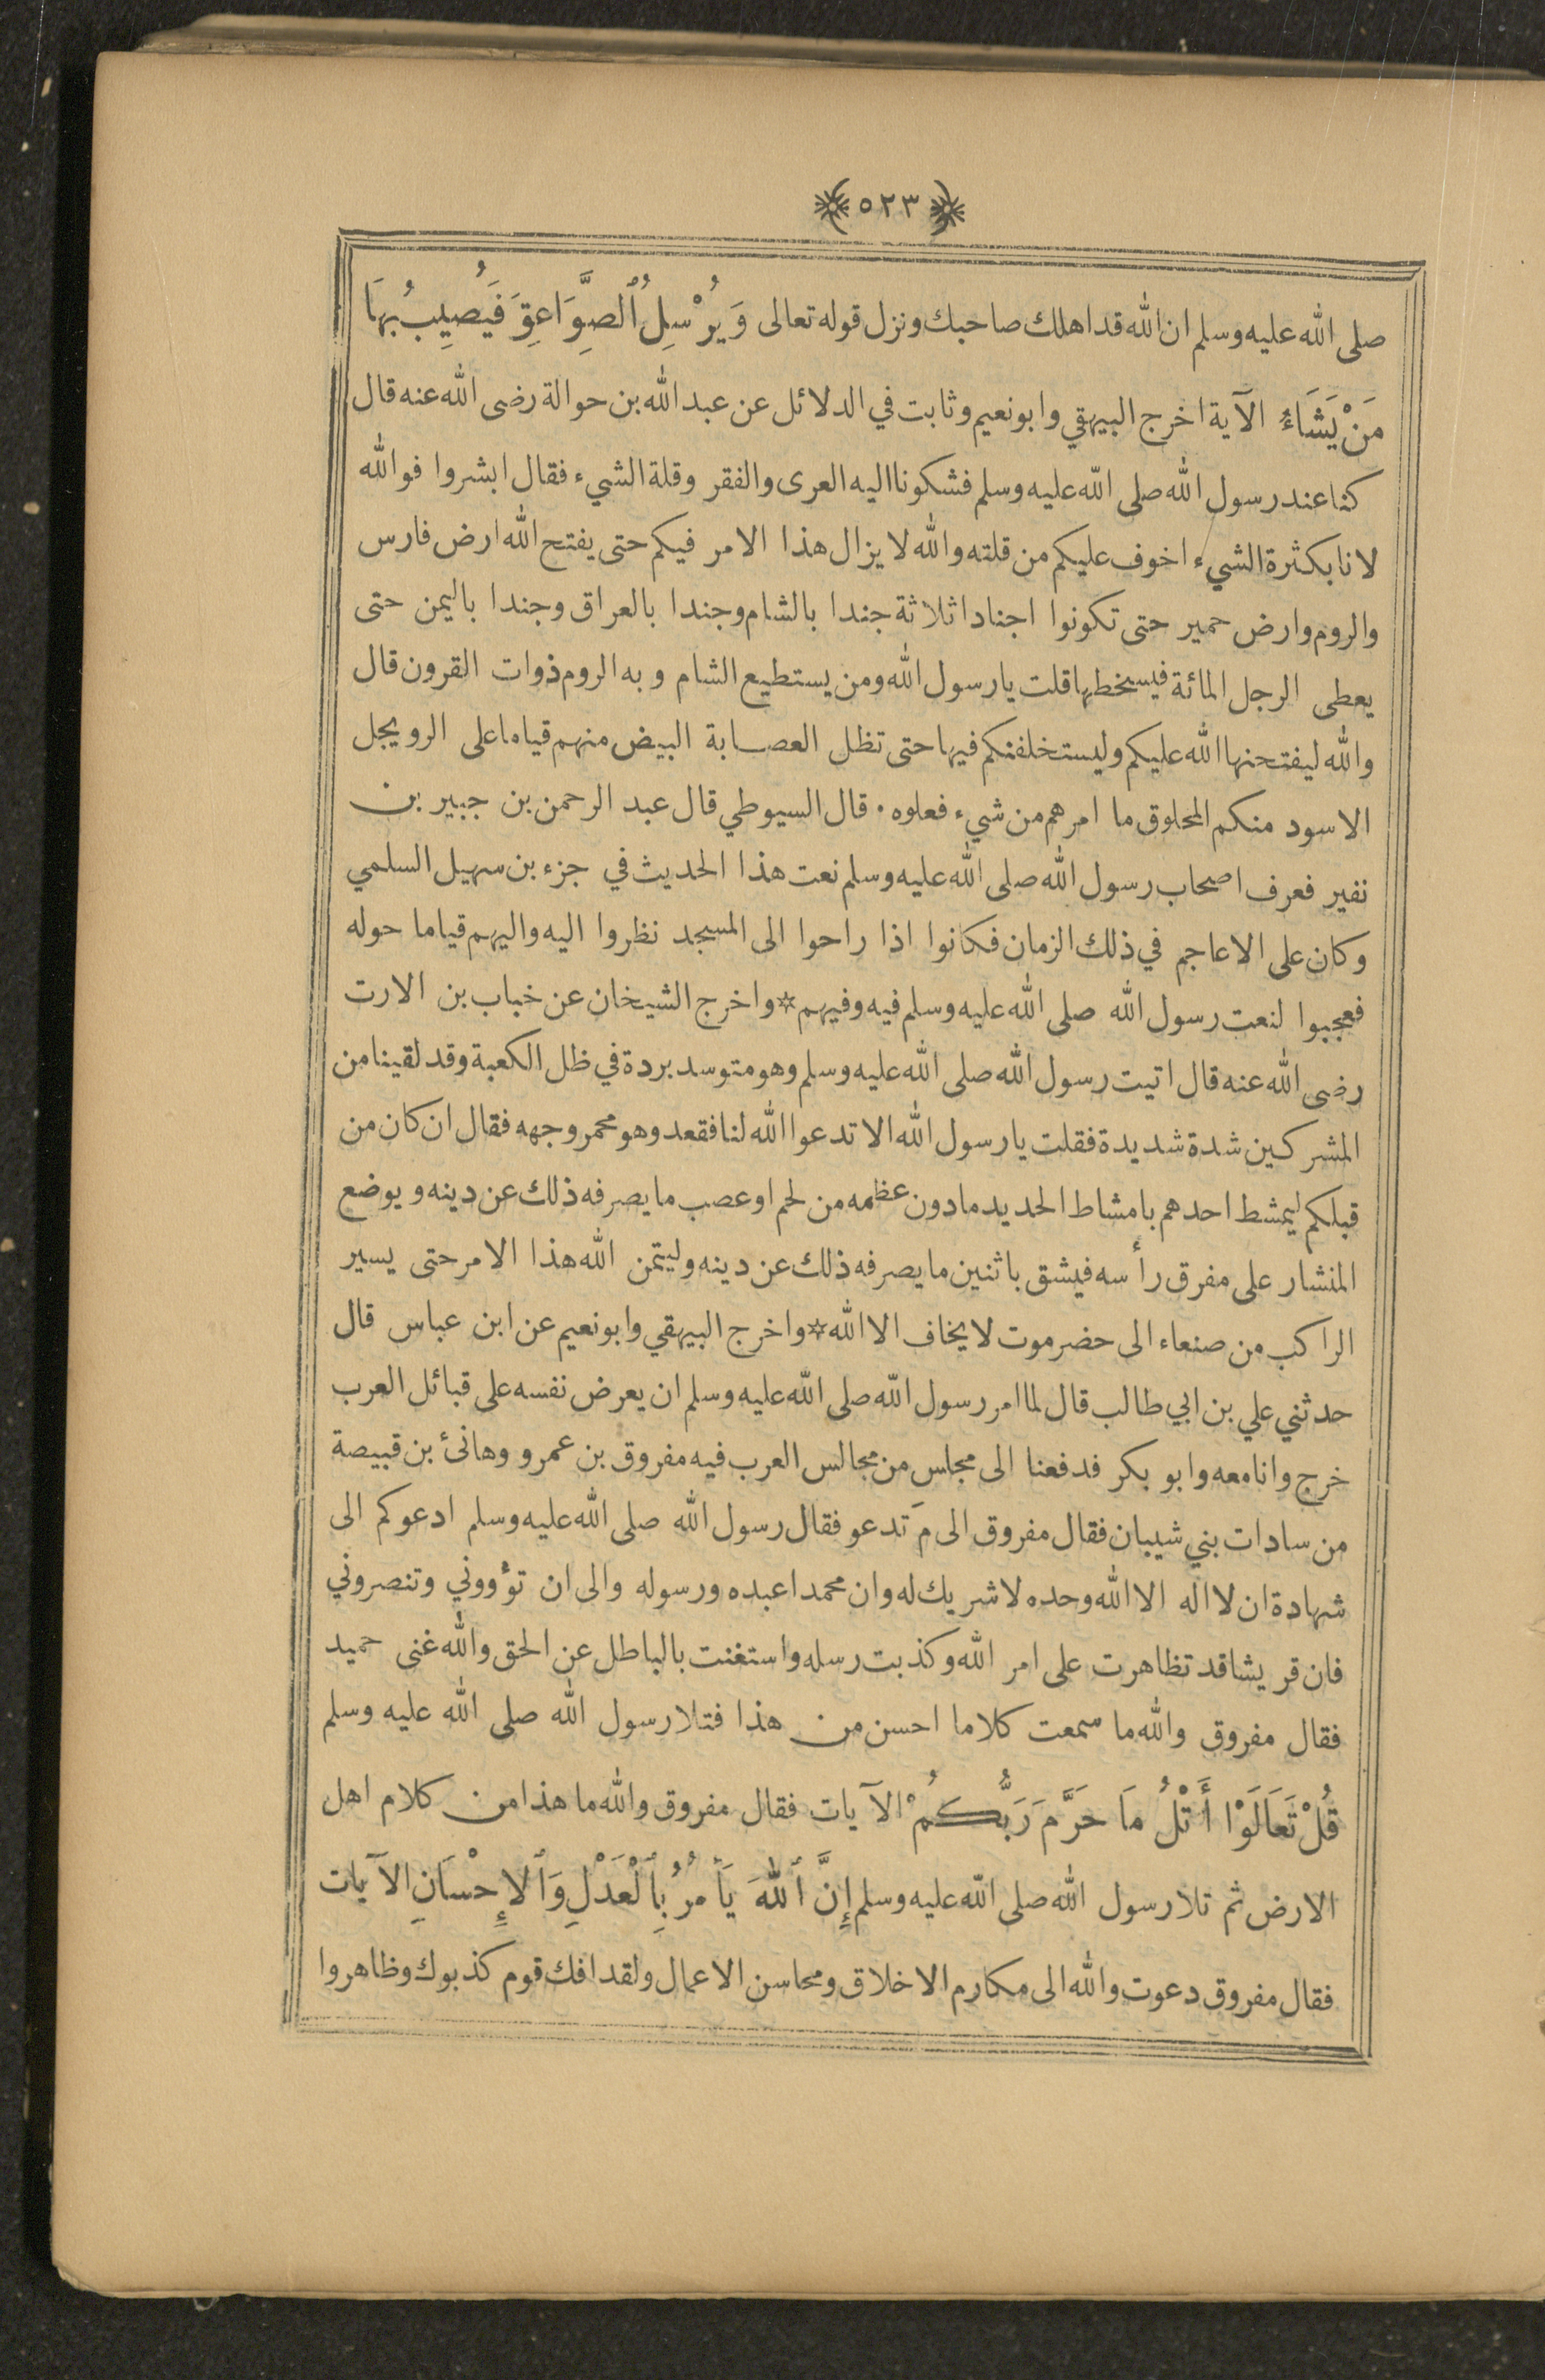 ٥٢٣
صلى الله عليه وسلم ان الله قد اهلك صاحبك ونزل قوله تعالى وَيُرْسِلُ ٱلصَّوَاعِقَ فَيُصِيبُ بِهَا
مَنْ يَشَاءُ الآية اخرج البيهقي وابونعيم وثابت في الدلائل عن عبد الله بن حوالة رضى الله عنه قال
كنا عند رسول الله صلى الله عليه وسلم فشكونا اليه العرى والفقر وقلة الشيء فقال ابشروا فوالله
لانا بكثرة الشيء اخوف عليكم من قلته والله لا يزال هذا الامر فيكم حتى يفتح الله ارض فارس
والروم وارض حمير حتى تكونوا اجنادا ثلاثة جندا بالشام وجندا بالعراق وجندا باليمن حتى
يعطى الرجل المائة فيسخطها قلت يا رسول الله ومن يستطيع الشام و به الروم ذوات القرون قال
والله ليفتحنها الله عليكم وليستخلفنكم فيها حتى تظل العصابة البيض منهم قياما على الرويجل
الاسود منكم المحلوق ما امرهم من شيء فعلوه ٠ قال السيوطي قال عبد الرحمن بن جبير بن
نفير فعرف اصحاب رسول الله صلى الله عليه وسلم نعت هذا الحديث في جزء بن سهيل السلمي
وكان على الاعاجم في ذلك الزمان فكانوا اذا راحوا الى المسجد نظروا اليه واليهم قياما حوله
فعجبوا لنعت رسول الله صلى الله عليه وسلم فيه وفيهم * واخرج الشيخان عن خباب بن الارت
رضى الله عنه قال اتيت رسول الله صلى الله عليه وسلم وهو متوسد بردة في ظل الكعبة وقد لقينا من
المشركين شدة شديدة فقلت يا رسول الله الا تدعوا الله لنا فقعد وهو محمر وجهه فقال ان كان من
قبلكم ليمشط احدهم بامشاط الحديد ما دون عظمه من لحم او عصب ما يصرفه ذلك عن دينه ويوضع
المنشار على مفرق رأسه فيشق باثنين ما يصرفه ذلك عن دينه وليتمن الله هذا الامر حتى يسير
الراكب من صنعاء الى حضرموت لا يخاف الا الله * واخرج البيهقي وابونعيم عن ابن عباس قال
حدثني علي بن ابي طالب قال لما امر رسول الله صلى الله عليه وسلم ان يعرض نفسه على قبائل العرب
خرج وانا معه وابو بكر فدفعنا الى مجلس من مجالس العرب فيه مفروق بن عمرو وهانئ بن قبيصة
من سادات بني شيبان فقال مفروق الى مَ تدعو فقال رسول الله صلى الله عليه وسلم ادعوكم الى
شهادة ان لا اله الا الله وحده لا شريك له وان محمدا عبده ورسوله والى ان تؤووني وتنصروني
فان قريشا قد تظاهرت على امر الله وكذبت رسله واستغنت بالباطل عن الحق والله غنى حميد
فقال مفروق والله ما سمعت كلاما احسن من هذا فتلا رسول الله صلى الله عليه وسلم
قُلْ تَعَالَوْا أَتْلُ مَا حَرَّمَ رَبُّكُمْ الآيات فقال مفروق والله ما هذا من كلام اهل
الارض ثم تلا رسول الله صلى الله عليه وسلم إِنَّ ٱللهَ يَأْمُرُ بِٱلْعَدْلِ وَٱلْإِحْسَانِ الآيات
فقال مفروق دعوت والله الى مكارم الاخلاق ومحاسن الاعمال ولقد افك قوم كذبوك وظاهروا